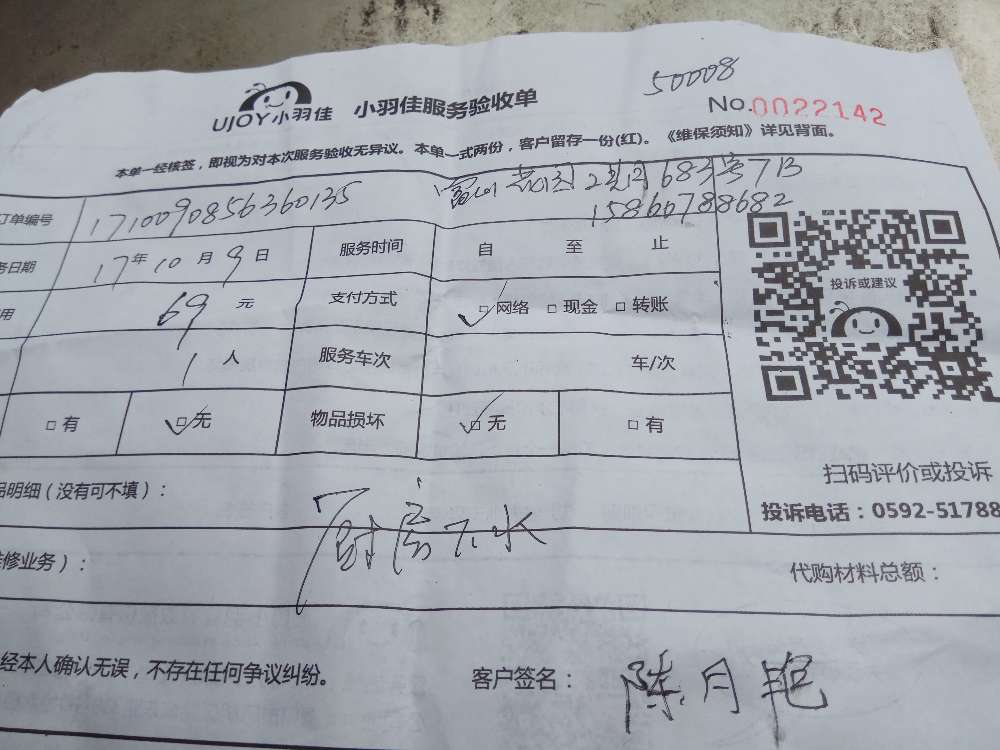 50008
UJOY小羽佳 小羽佳服务验收单
No.0022142
本单一经核签，即视为对本次服务验收无异议。本单一式两份，客户留存一份(红)。《维保须知》详见背面。
订单编号 1710090856360135
683号71B
15860788682
务日期 17年10月9日 服务时间 自 至 止
用 69元 支付方式 □网络 □现金 □转账
1人 服务车次 车/次
□有 □无 物品损坏 □无 □有
投诉或建议
扫码评价或投诉
投诉电话：0592-51788
品明细（没有可不填）：
厨房下水
维修业务）：
代购材料总额：
经本人确认无误，不存在任何争议纠纷。 客户签名：陈月艳